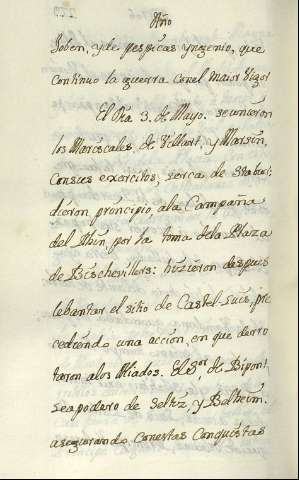 Año
Joben, y de pespicas yngenio, que
continuo la guerra con el maior Vigor
El Dia 3. de Mayo. se unieron
los Mariscales, de Villart, y Marsin,
con sus exercitos, serca de
dieron principio, ala Campaña
del Rhin, por la toma dela Plaza
de Bischevillers: hizieron despues
lebantar el sitio de Castel-Luis, pre
cediendo una acción, en que derro
taron alos Aliados. El Sor. de Bipont,
se apodero de Seltz, y Belheim.
asegurando, con estas Conquistas